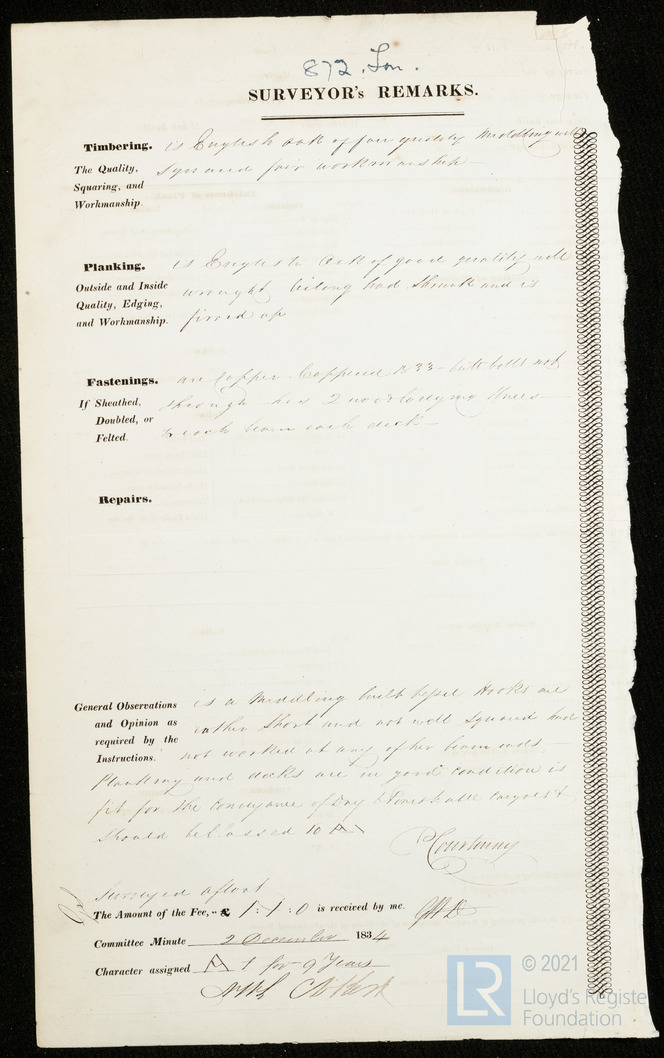 872. Lon.
SURVEYOR's REMARKS.
Timbering. is English oak of fair quality Middling well
The Quality, Squaring, and Workmanship. sqrd and fair workmanship
Planking. is English Oak of good quality well
Outside and Inside wrought had Shrunk and is
Quality, Edging, and Workmanship. firred up
Fastenings. are Copper Coppered butt bolts not
If Sheathed, through has 2 wood lodging Knees
Doubled, or Felted. to each beam each deck
Repairs.
General Observations is a Middling built vessel Hooks are
and Opinion as rather Short and not well Squared had
required by the Instructions. not worked at any of her beam ends
Planking and decks are in good condition is
fit for the conveyance of Dry & Perishable cargoes &
should be Classed 10 A
Courtenay
Surveyed afloat
The Amount of the Fee, £ 1 : 1 : 0 is received by me.
Committee Minute 2 December 1834
Character assigned A 1 for 9 Years
© 2021
LR
Lloyd's Registe
Foundation